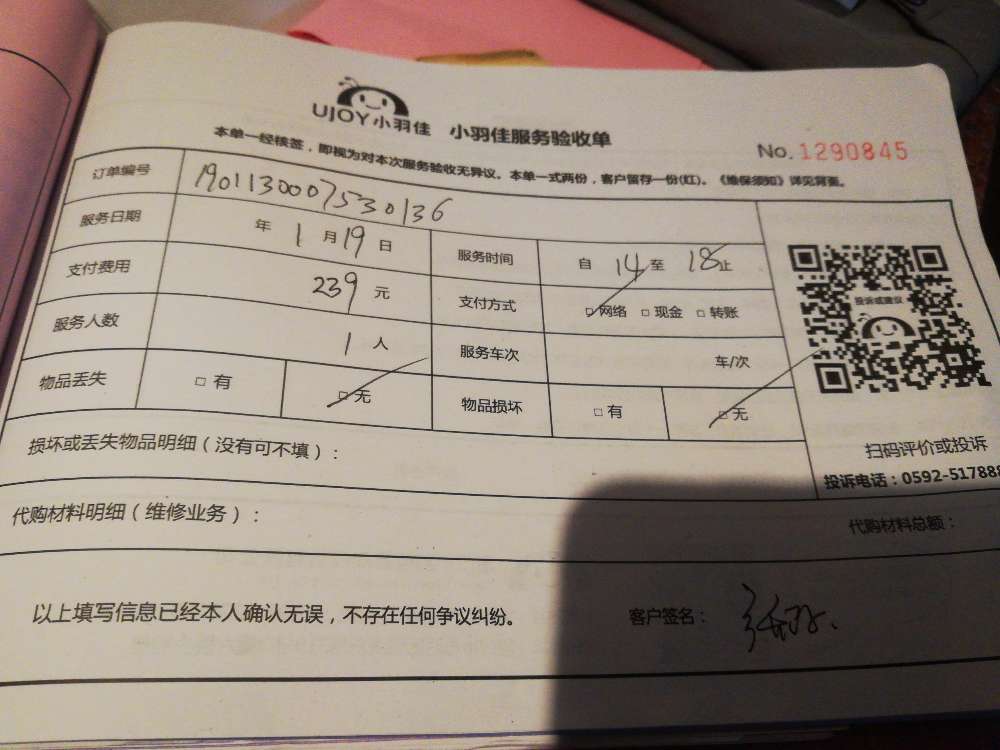 UJOY小羽佳 小羽佳服务验收单
No. 1290845
本单一经核签，即视为对本次服务验收无异议。本单一式两份，客户留存一份(红)。《维保须知》详见背面。
订单编号 1901130007530136
服务日期 年 1 月 19 日 服务时间 自 14 至 18 止
支付费用 239 元 支付方式 □网络 □现金 □转账
服务人数 1 人 服务车次 车/次
物品丢失 □有 □无 物品损坏 □有 □无
投诉或建议
扫码评价或投诉
投诉电话：0592-517888
损坏或丢失物品明细（没有可不填）：
代购材料明细（维修业务）： 代购材料总额：
以上填写信息已经本人确认无误，不存在任何争议纠纷。 客户签名：